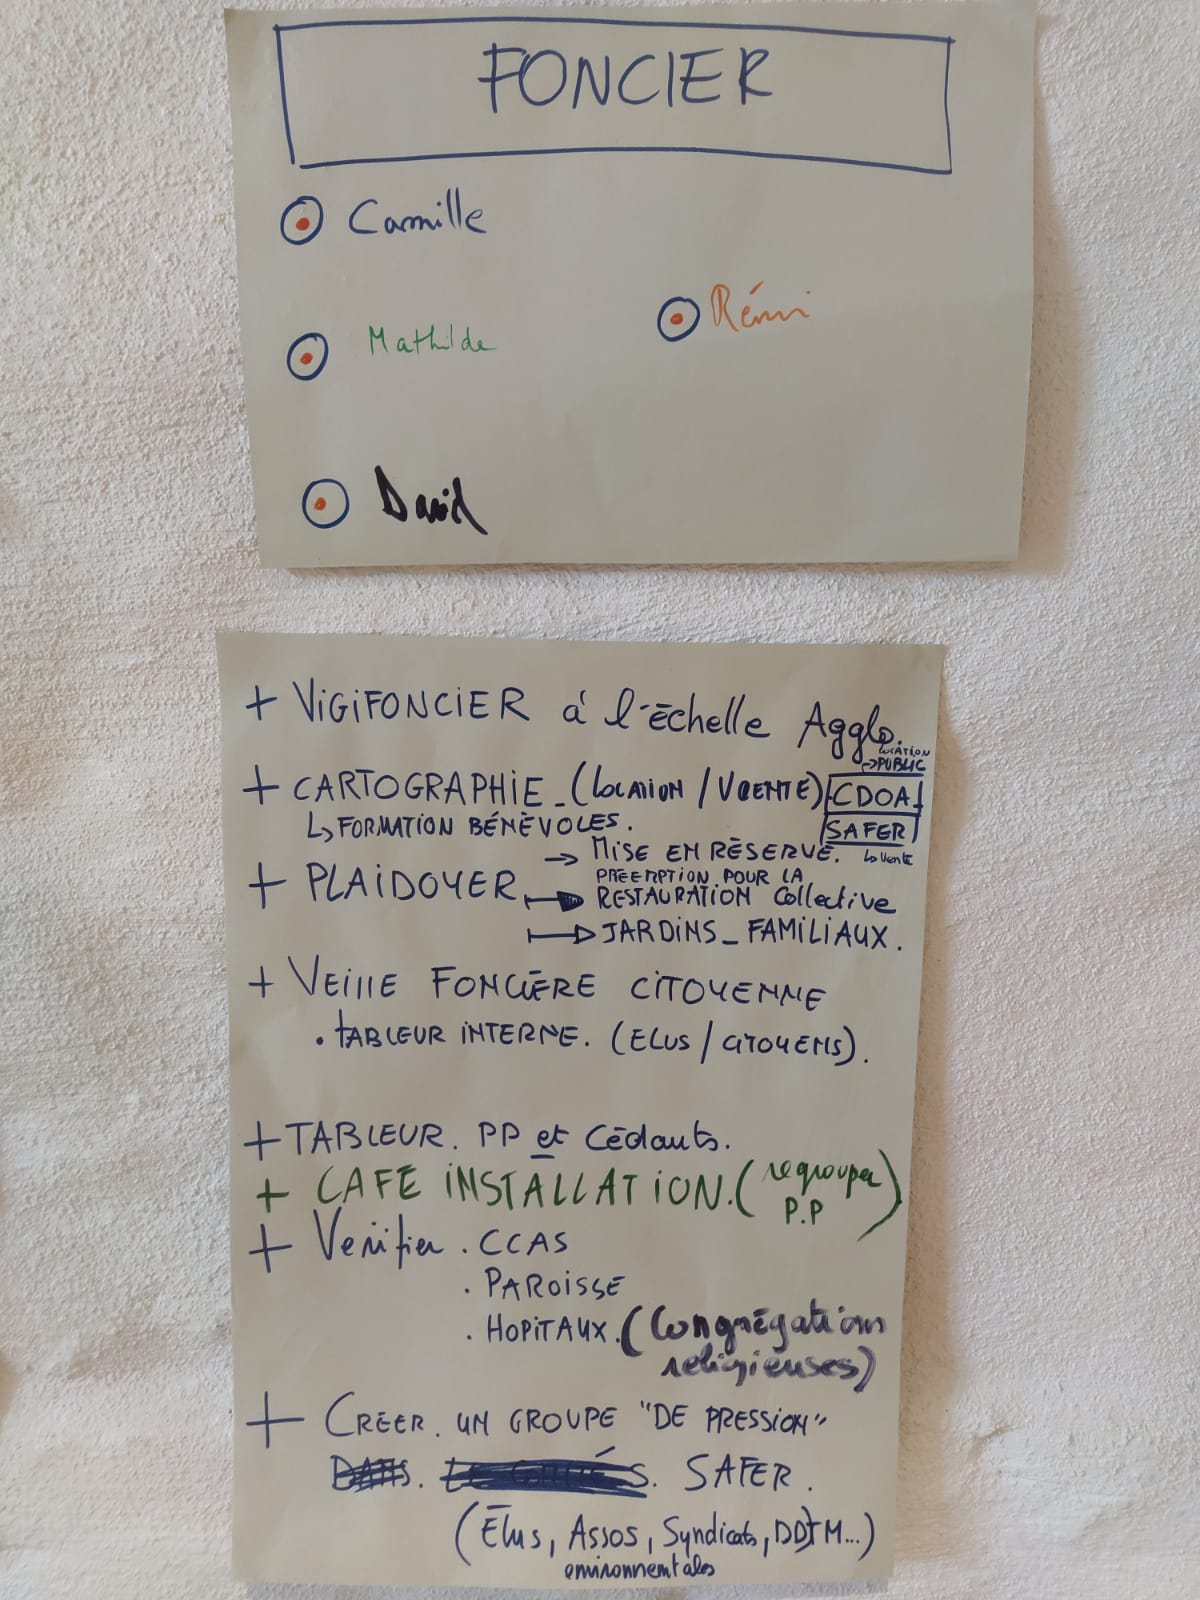 FONCIER
Camille
Rémi
Mathilde
David
+ VIGIFONCIER à l'échelle Agglo.
LOCATION
→ PUBLIC
+ CARTOGRAPHIE - (LOCATION / VENTE) CDOA
↳ FORMATION BÉNÉVOLES. SAFER
↳ Vente
→ MISE EN RÉSERVE.
+ PLAIDOYER → PRÉEMPTION POUR LA
RESTAURATION Collective
→ JARDINS - FAMILIAUX.
+ VEILLE FONCIÈRE CITOYENNE
• TABLEUR INTERNE. (ELUS / CITOYENS).
+ TABLEUR. PP et Cédants.
+ CAFÉ INSTALLATION. (regrouper
P.P)
+ Vérifier . CCAS
. PAROISSE
. HOPITAUX. (Congrégations
religieuses)
+ CRÉER. UN GROUPE "DE PRESSION"
SAFER.
(Élus, Assos, Syndicats, DDTM...)
environnementales